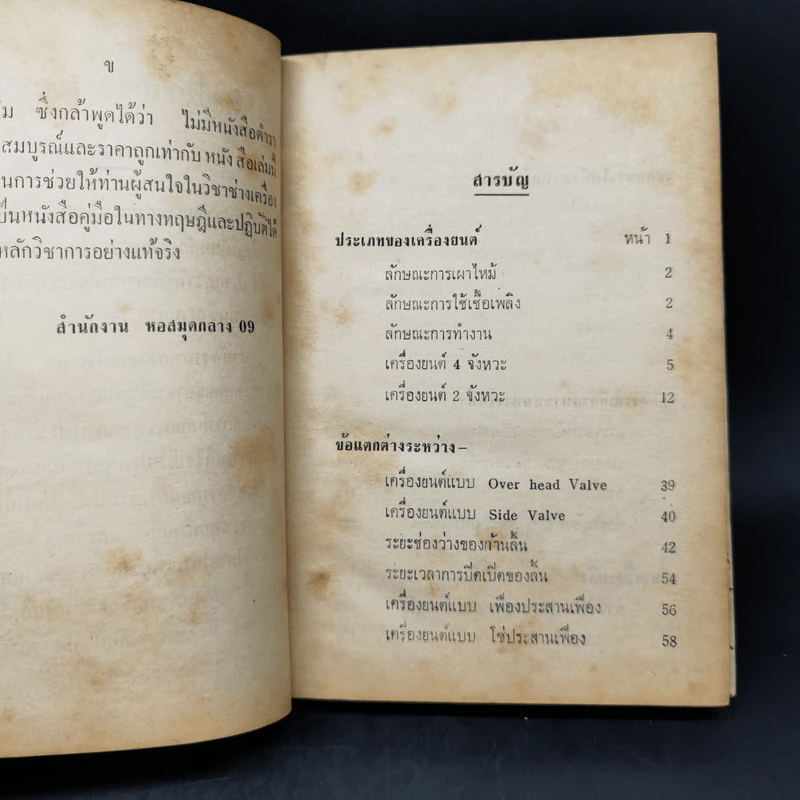 ข
ซึ่งกล้าพูดได้ว่า ไม่มีหนังสือตำรา
สมบูรณ์และราคาถูกเท่ากับ หนังสือเล่มนี้
นการช่วยให้ท่านผู้สนใจในวิชาช่างเครื่อง
ป็นหนังสือคู่มือในทางทฤษฎีและปฏิบัติได้
หลักวิชาการอย่างแท้จริง
สำนักงาน หอสมุดกลาง 09
สารบัญ
ประเภทของเครื่องยนต์ หน้า 1
ลักษณะการเผาไหม้ 2
ลักษณะการใช้เชื้อเพลิง 2
ลักษณะการทำงาน 4
เครื่องยนต์ 4 จังหวะ 5
เครื่องยนต์ 2 จังหวะ 12
ข้อแตกต่างระหว่าง–
เครื่องยนต์แบบ Over head Valve 39
เครื่องยนต์แบบ Side Valve 40
ระยะช่องว่างของก้านลิ้น 42
ระยะเวลาการปิดเปิดของลิ้น 54
เครื่องยนต์แบบ เฟืองประสานเฟือง 56
เครื่องยนต์แบบ โซ่ประสานเฟือง 58